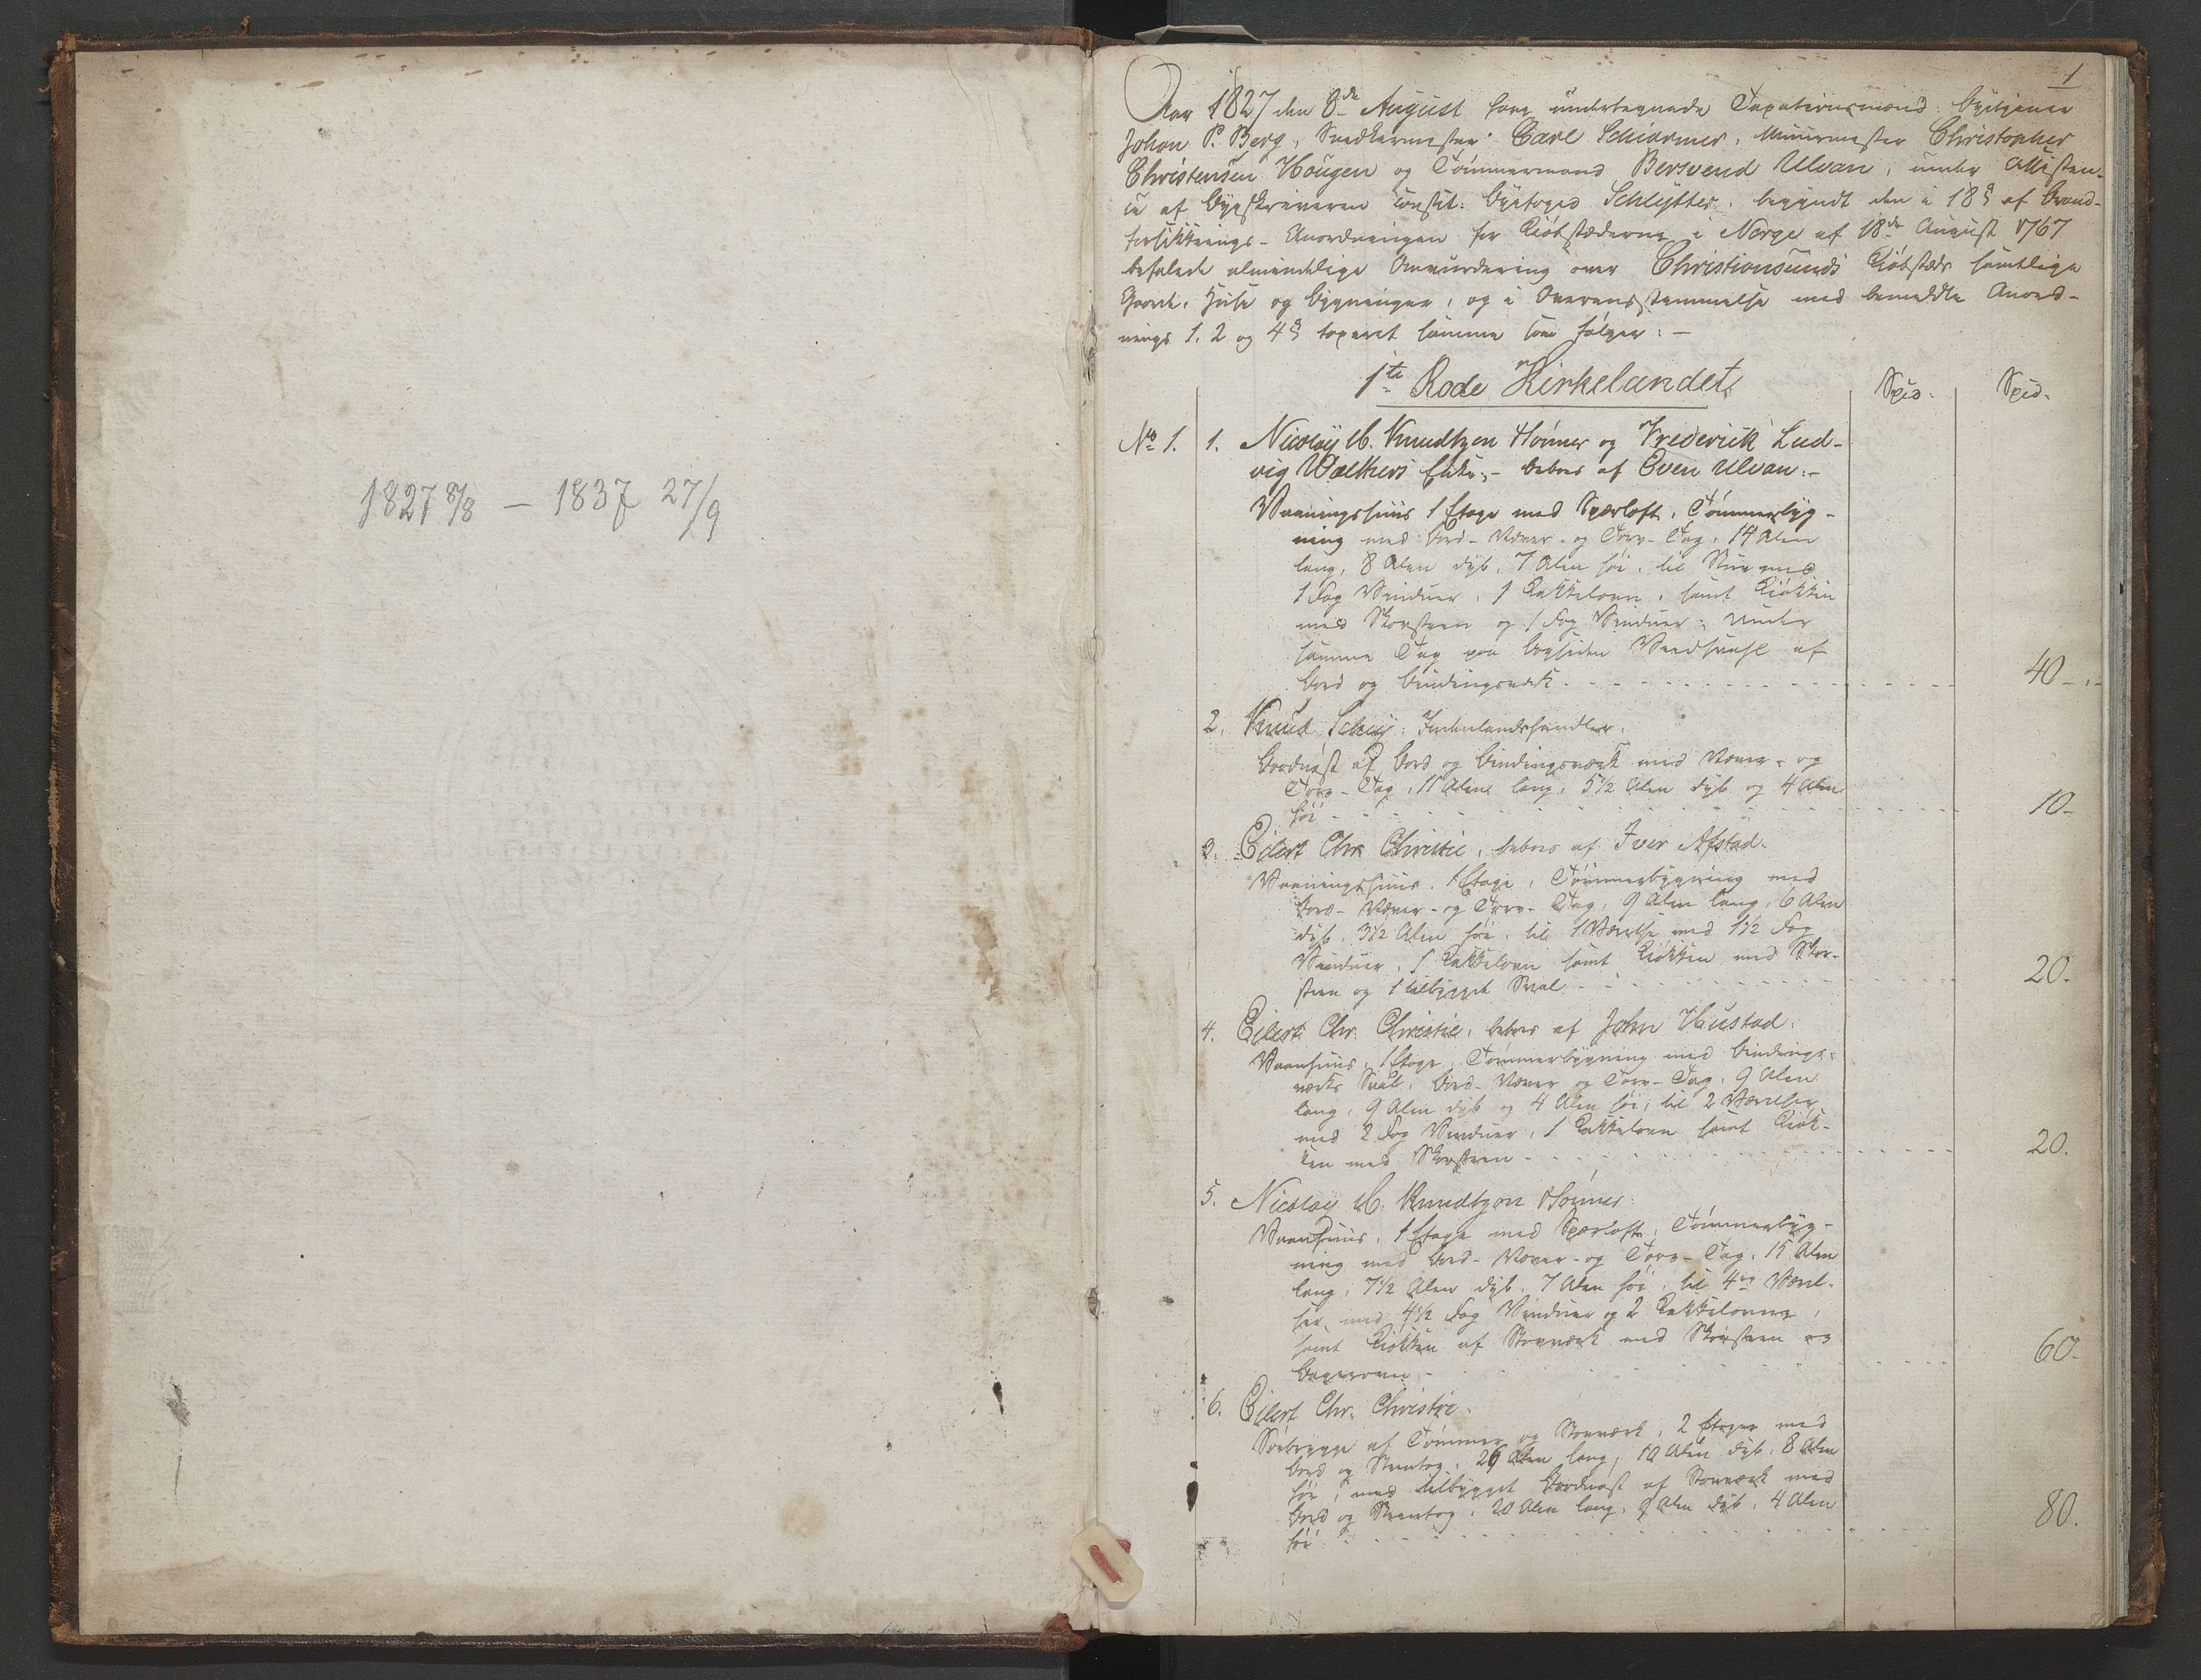 1827 8/8 — 1837 27/9
1
Aar 1827 den 8de August have undertegnede Taxationsmænd:
Johan P. Berg, Snedkermester Carl Schiarmer, Muurmester Christopher
Christensen Hougen og Tømmermand Bersvend Ulvan, under Assisten-
ce af Byeskriveren constit: Byefoged Schlytter, begyndt den i 18 § af Brand-
forsikkrings-Anordningen for Kiøbstæderne i Norge af 18de August 1767
befalede almindelige Omvurdering over Christiansunds Kiøbstæds samtlige
Gaarde, Huse og Bygninger, og i Overensstemmelse med bemeldte Anord-
nings 1. 2 og 4 § taxeret samme som følger: —
1te Rode Kirkelandet
Spd. Spd.
No 1. 1. Nicolay H. Knudtzon Sønner og Frederick Lud-
vig Walthers Enke, - beboes af Even Ulvan. -
Vaaningshuus 1 Etage med Sperloft, Tømmerbyg-
ning med Bord- Næver- og Torv-Tag, 14 Alen
lang, 8 Alen dyb, 7 Alen høi, til Stue med
1 Fag Vinduer, 1 Kakkelovn, samt Kiøkken
med Skorsteen og 1 Fag Vinduer; under
samme Tag paa Bagsiden af
Bord og Bindingsværk - 40 -
2. Knud Schey, Indenlandshandler.
Baadnøst af Bord og Bindingsværk med Næver- og
Torv-Tag, 11 Alen lang, 5 1/2 Alen dyb og 4 Alen
høi - 10 -
3. Eilert Chr. Christie, beboes af Iver Afstad.
Vaaningshuus, 1 Etage, Tømmerbygning med
Bord- Næver- og Torv-Tag, 9 Alen lang, 6 Alen
dyb, 3 1/2 Alen høi, til 1 Værelse med 1 1/2 Fag
Vinduer, 1 Kakkelovn samt Kiøkken med Skor-
steen og 1 tilbygget Sval - 20.
4. Eilert Chr. Christie, beboes af John Hustad.
Vaanhuus, 1 Etage, Tømmerbygning med Bindings-
værks Sval, Bord- Næver og Torv-Tag, 9 Alen
lang, 9 Alen dyb og 4 Alen høi, til 2 Værelser
med 2 Fag Vinduer, 1 Kakkelovn samt Kiøk-
ken med Skorsteen - 20.
5. Nicolay H. Knudtzon Sønner.
Vaanhuus, 1 Etage med Sperloft, Tømmerbyg-
ning med Bord- Næver- og Torv-Tag, 15 Alen
lang, 7 1/2 Alen dyb, 7 Alen høi, til 4re Værel-
ser med 4 1/2 Fag Vinduer og 2 Kakkelovne,
samt Kiøkken af Stavværk med Skorsteen og
Bagerovn - 60 -
6. Eilert Chr. Christie.
Søebrygge af Tømmer og Stavværk, 2 Etager med
Bord og Steentag, 26 Alen lang, 10 Alen dyb, 8 Alen
høi, med tilbygget Baadnøst af Stavværk med
Bord og Steentag, 20 Alen lang, 9 Alen dyb, 4 Alen
høi - 80.